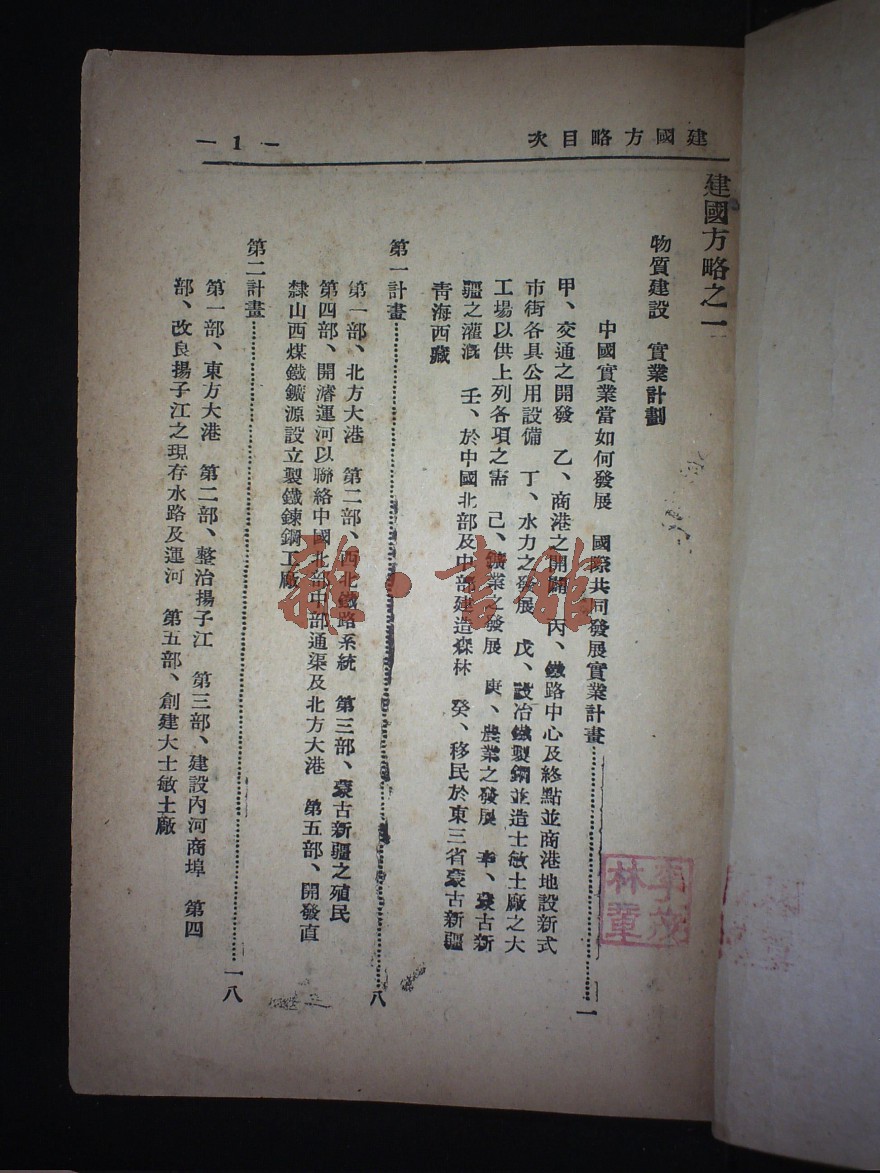 建國方略目次
— 1 —
建國方略之一
物質建設 實業計劃
中國實業當如何發展 國際共同發展實業計畫……一
甲、交通之開發 乙、商港之開闢 丙、鐵路中心及終點並商港地設新式
市街各具公用設備 丁、水力之發展 戊、設冶鐵製鋼並造士敏土廠之大
工場以供上列各項之需 己、鑛業之發展 庚、農業之發展 辛、蒙古新
疆之灌漑 壬、於中國北部及中部建造森林 癸、移民於東三省蒙古新疆
青海西藏
第一計畫……八
第一部、北方大港 第二部、西北鐵路系統 第三部、蒙古新疆之殖民
第四部、開濬運河以聯絡中國北部中部通渠及北方大港 第五部、開發直
隸山西煤鐵鑛源設立製鐵鍊鋼工廠
第二計畫……一八
第一部、東方大港 第二部、整治揚子江 第三部、建設內河商埠 第四
部、改良揚子江之現存水路及運河 第五部、創建大士敏土廠
雜·書館